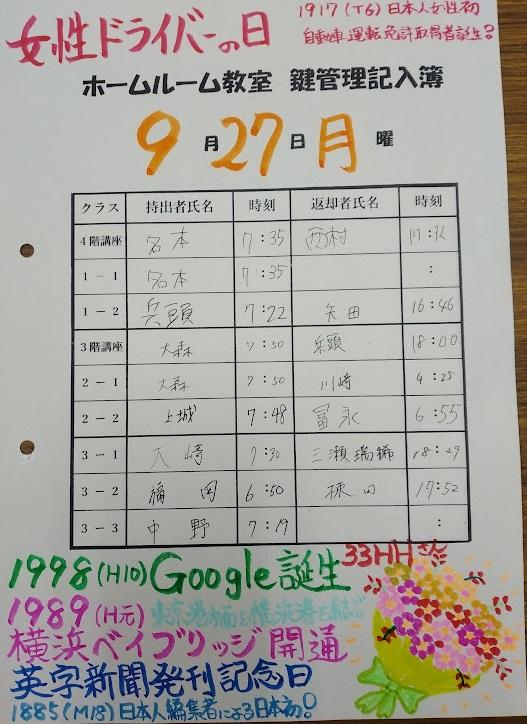 女性ドライバーの日
1917(T6)日本人女性初
自動車運転免許取得者誕生!
ホームルーム教室 鍵管理記入簿
9月27日月曜
クラス 持出者氏名 時刻 返却者氏名 時刻
4階講座 名本 7:35 西村
1-1 名本 7:35 :
1-2 兵頭 7:22 矢田 16:46
3階講座 大森 7:50 兵頭 18:00
2-1 大森 7:50 川崎 4:25
2-2 上城 7:48 冨永 6:55
3-1 大崎 7:30 三瀬瑞稀 18:29
3-2 福田 6:50 17:52
3-3 中野 7:19 :
1998(H10)Google誕生
33HHさん
1989(H元)東京港方面と横浜港を結ぶ
横浜ベイブリッジ開通
英字新聞発刊記念日
1885(M18)日本人編集者による日本初!